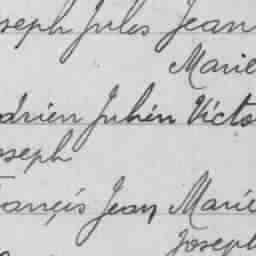 seph Jules Jean
Marie
drien Julien Victo
oseph
rançis Jean Marie
Joseph